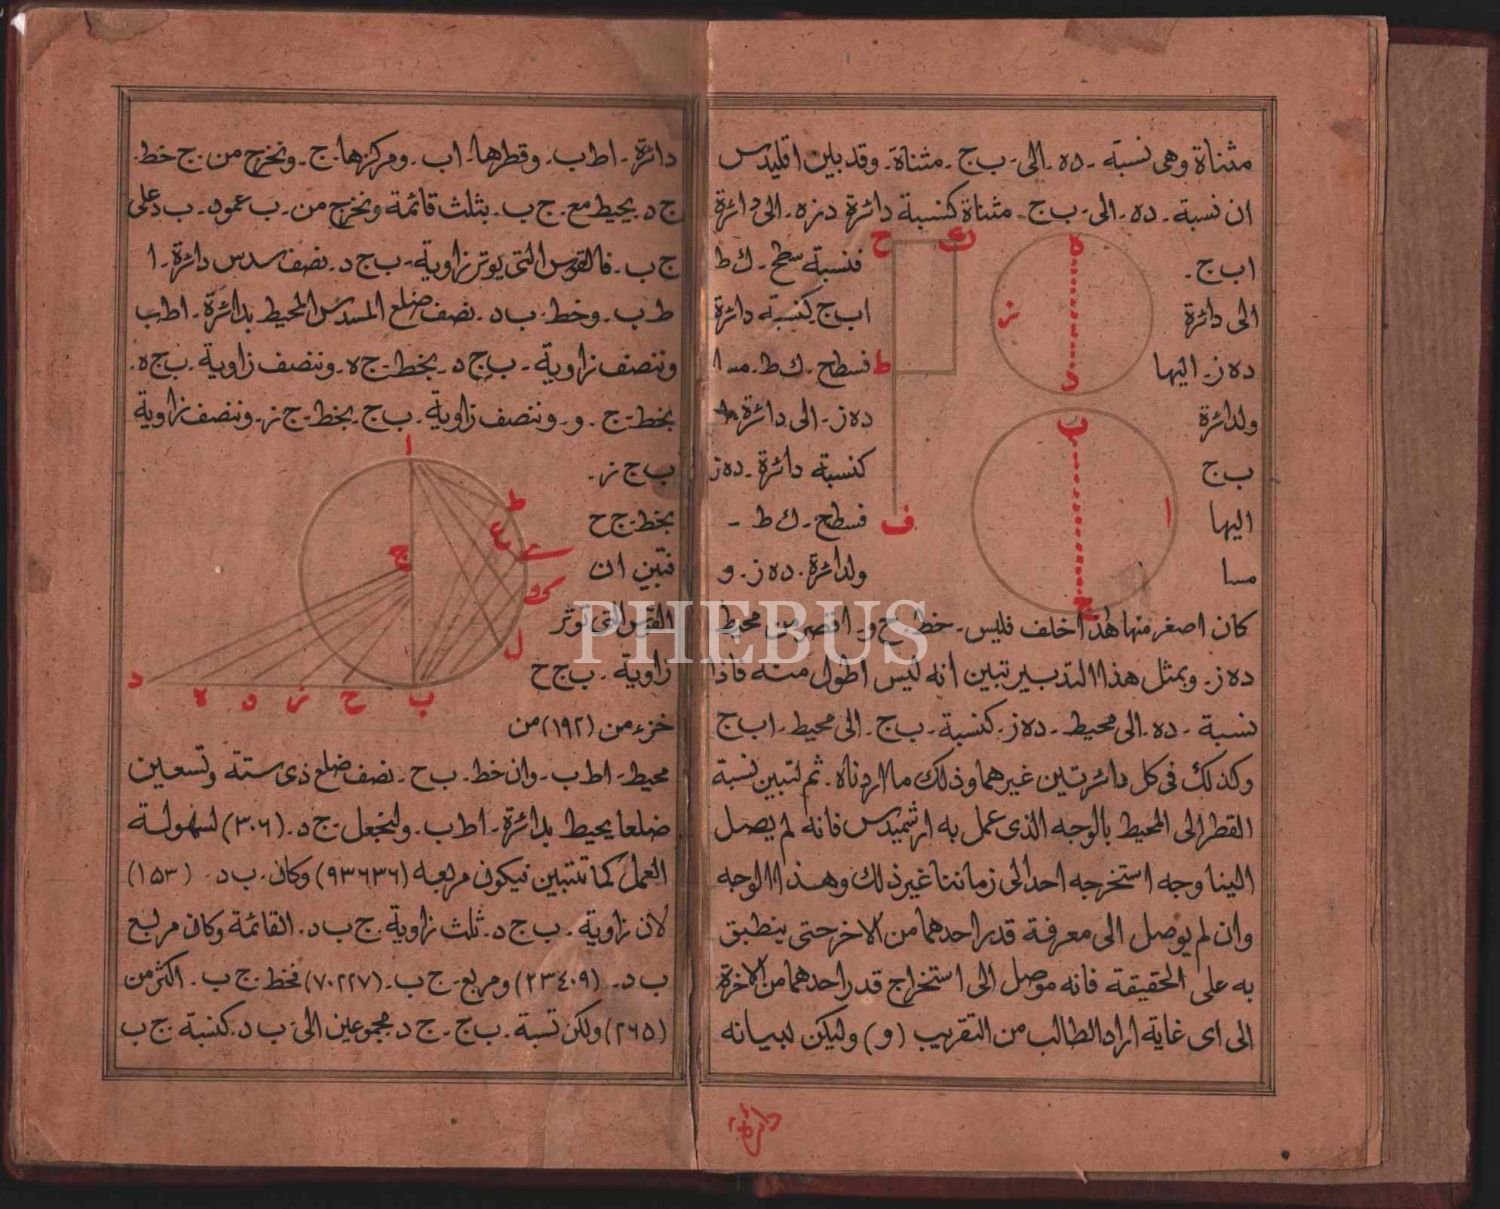 مثناة وهى نسبة - ده - الى - ب ج - مثناة - وقد بين اقليدس
ان نسبة - ده - الى - ب ج - مثناة كنسبة دائرة دزه - الى دائرة
اب ج - فنسبة سطح - ك ط
الى دائرة اب ج كنسبة دائرة
ده ز - اليها فسطح - ك ط - مسا
ولدائرة ده ز - الى دائرة
ب ج كنسبة دائرة - ده ز
اليها فسطح - ك ط -
مسا ولدائرة - ده ز - و
كان اصغر منها هذا خلف فليس - خط - ح و - اقصر من محيط
ده ز - وبمثل هذا التدبير تبين انه ليس اطول منه فاذا
نسبة - ده - الى محيط - ده ز - كنسبة - ب ج - الى محيط - اب ج
وكذلك فى كل دائرتين غيرهما وذلك ما اردناه - ثم لتبين نسبة
القطر الى المحيط بالوجه الذى عمل به ارشميدس فانه لم يصل
الينا وجه استخرجه احد الى زماننا غير ذلك وهذا الوجه
وان لم يوصل الى معرفة قدر احدهما من الاخر حتى ينطبق
به على الحقيقة فانه موصل الى استخراج قدر احدهما من الاخرة
الى اى غاية اراد الطالب من التقريب (و) وليكن لبيانه
ح
ك
ط
ف
ه
ز
د
ب
ا
ج
دائرة
دائرة - اط ب - وقطرها - اب - ومركزها - ج - ونخرج من - ج خط -
ج د - يحيط مع - ج ب - بثلث قائمة ونخرج من - ب عمود - ب د على
ج ب - فالقوس التى يوتر زاوية - ب ج د - نصف سدس دائرة - ا
ط ب - وخط - ب د - نصف ضلع المسدس المحيط بدائرة - اط ب
وننصف زاوية - ب ج د - بخط - ج ه - وننصف زاوية - ب ج ه -
بخط - ج - و - وننصف زاوية - ب ج - بخط - ج ز - وننصف زاوية
ب ج ز -
بخط - ج ح
فتبين ان
القوس التى توثر
زاوية - ب ج ح
خزء من (١٩٢) من
محيط - اط ب - وان خط - ب ح - نصف ضلع ذى ستة وتسعين
ضلعا يحيط بدائرة - اط ب - ولنجعل - ج د - (٣٠٦) لسهولة
العمل كما تتبين فيكون مربعه (٩٣٦٣٦) وكان - ب د - (١٥٣)
لان زاوية - ب ج د - ثلث زاوية - ج ب د - القائمة وكان مربع
ب د - (٢٣٤٠٩) ومربع - ج ب - (٧٠٢٢٧) فخط - ج ب - اكثر من
(٢٦٥) ولكن نسبة - ب ج - ج د - مجموعين الى - ب د - كنسبة - ج ب
ا
ط
ع
ج
ل
د
ه
ز
ح
ب
PHEBUS